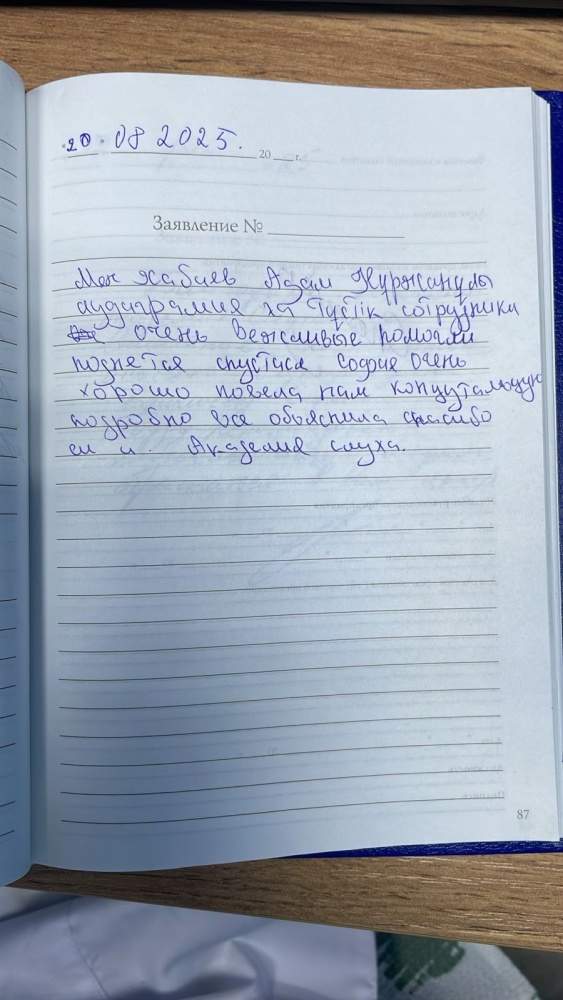 20. 08 2025. 20 г.
Заявление №
Мен Жабаев Адам Нуржанулы
аудиаграмия ха Тустік сотрудники
очень вежливые помогли
поднется спустися София очень
хорошо повела нам концуталыцую
подробно все объяснила спасибо
ей и. Академия слуха.
87